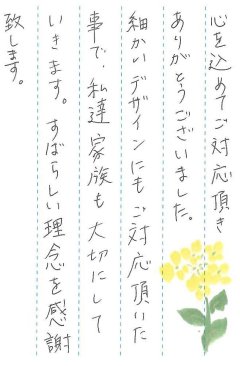 心を込めてご対応頂き
ありがとうございました。
細かいデザインにもご対応頂いた
事で、私達家族も大切にして
いきます。すばらしい理念を感謝
致します。